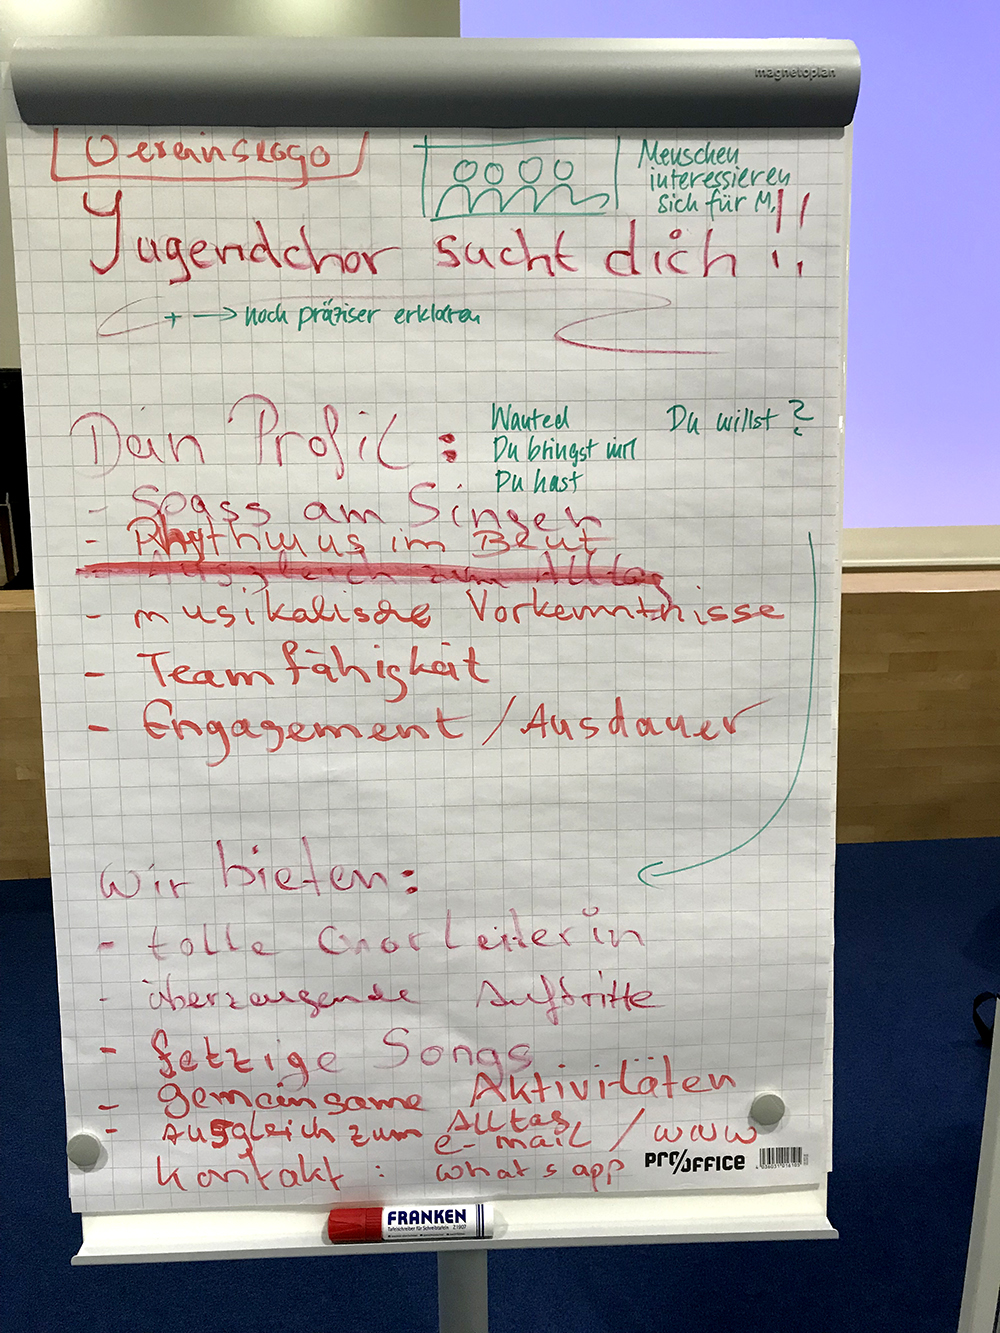 magnetoplan
Vereinslogo
Menschen
interessieren
sich für M.
Jugendchor sucht dich !!
+ → noch präziser erklären
Dein Profil :
Wanted
Du bringst mit
Du hast
Du willst ?
- Spass am Singen
- Rhythmus im Blut
- Ausgleich zum Alltag
- musikalische Vorkenntnisse
- Teamfähigkeit
- Engagement / Ausdauer
Wir bieten :
- tolle Chorleiterin
- überzeugende Auftritte
- fetzige Songs
- gemeinsame Aktivitäten
- Ausgleich zum Alltag
e-mail / www
Kontakt : what's app
PRO/OFFICE
FRANKEN